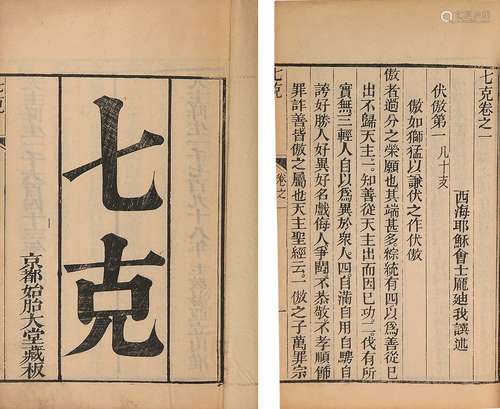 七克
京都始胎大堂藏板
七克
七克卷之一
伏傲第一 凡十支
西海耶穌會士龐廸我譔述
傲如獅猛以謙伏之作伏傲
傲者過分之榮願也其端甚多綜統有四以為善從已
出不歸天主一知善從天主出而因已功二伐有所
實無三輕人自以為異於衆人四自滿自用自騁自
誇好勝人好異好名戲侮人爭鬪不恭敬不孝順飾
罪詐善皆傲之屬也天主聖經云一傲之子萬罪宗
七克
卷之一
一